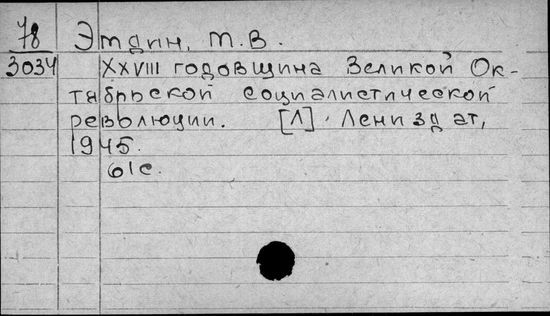 78 Этдин, Т.В.
3034 XXVIII годовщина Великой Ок-
тябрьской социалистической
революции. [Л], Лениздат,
1945.
61с.